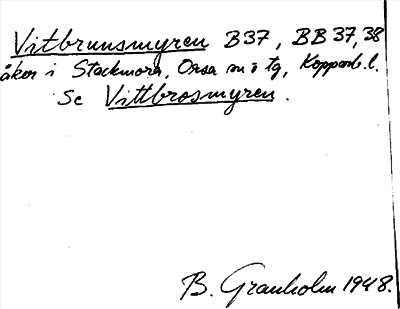 Vitbrunsmyren B37, BB37,38
åker i Stackmora, Orsa sn o tg, Kopparb. l.
Se Vittbrosmyren.
B. Granholm 1948.